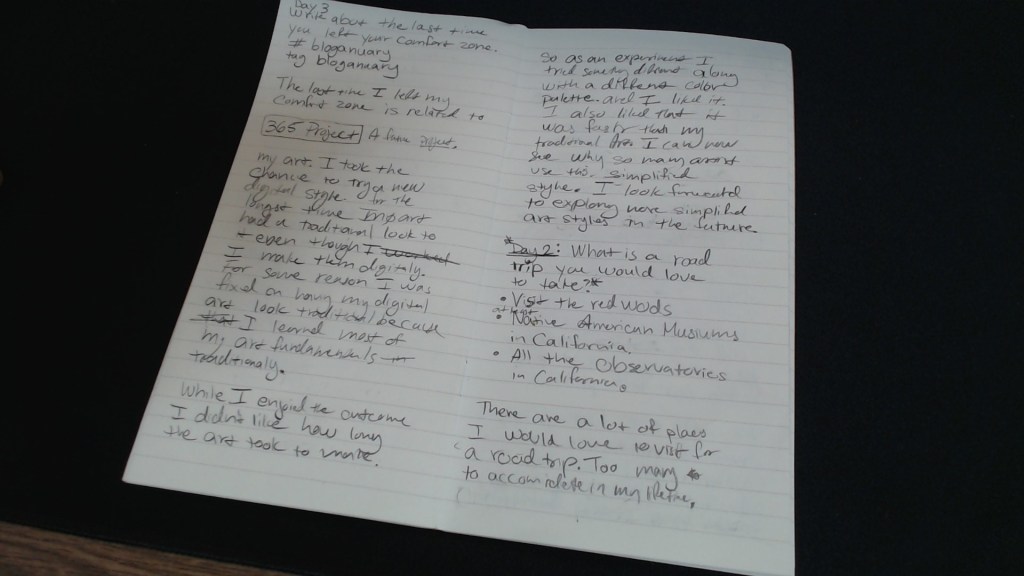 Day 3
Write about the last time
you left your comfort zone.
# bloganuary
tag bloganuary
The last time I left my
Comfort zone is related to
365 Project A future project.
my art. I took the
Chance to try a new
digital style. for the
longest time
had a traditional look to
even though I worked
I make them digitaly.
For some reason I was
fixed on having my digital
art look traditional because
that I learned most of
my art fundamentals
traditionaly.
While I enjoied the outcome
I didn't like how long
the art took to make.
So as an experiment I
tried something different along
with a different color
palette. and I like it.
I also liked that it
was faster than my
traditional I can now
see why so many artist
use this simplified
style. I look forward
to exploring more simplified
art styles in the future.
*Day 2: What is a road
trip you would love
to take?*
• Visit the redwoods
• Native American Musiums
in California.
• All the Observatories
in California.
There are a lot of places
I would love to visit for
a road trip. Too many
to accomidate in my lifetime.